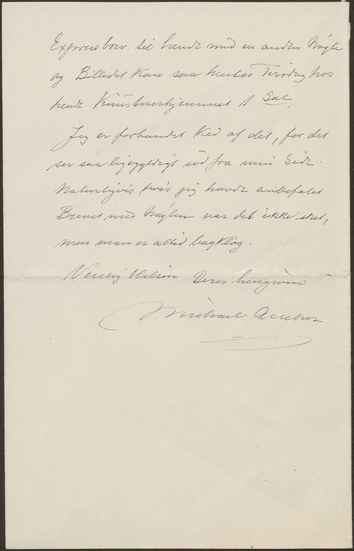 Expressbrev til hende med en anden Nøgle
og Billedet kan saa hentes Tirsdag hos
hende 1 Sal.
Jeg er forbandet ked af det, for det
ser saa ud fra min Side.
Naturligvis hvis jeg havde anbefalet
Brevet med Nøglen var det ikke sket,
men man er altid bagklog.
Venlig Hilsen Deres hengivne
Michael Ancher